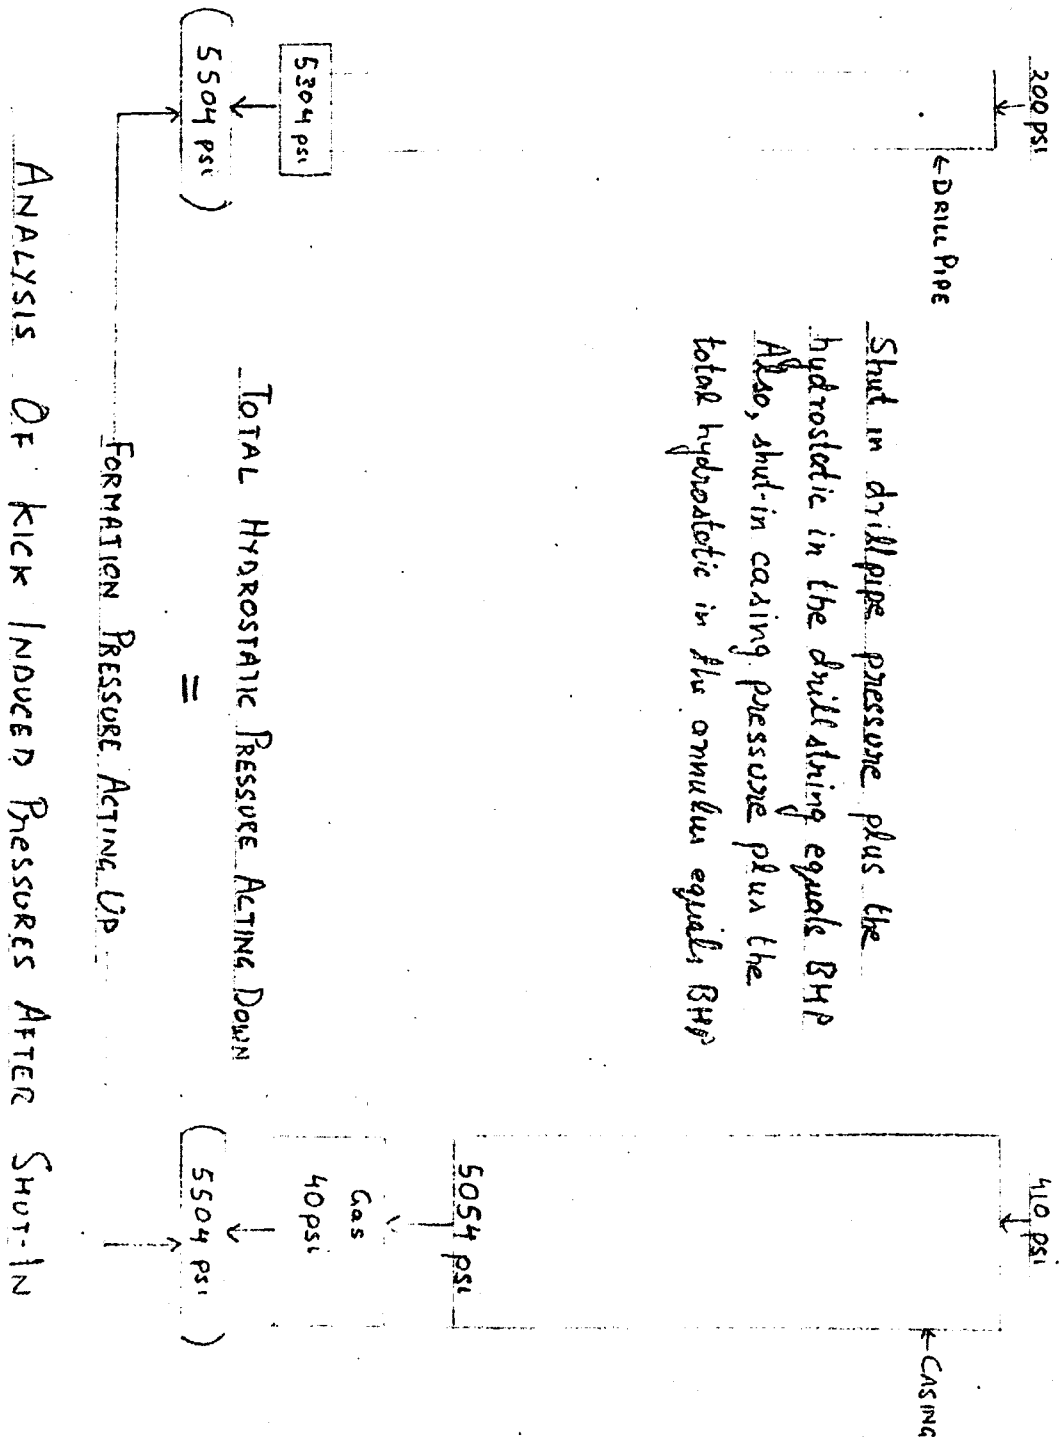 200 psi
← DRILL PIPE
410 psi
← CASING
Shut in drillpipe pressure plus the
hydrostatic in the drill string equals BHP
Also, shut-in casing pressure plus the
total hydrostatic in the annulus equals BHP
5054 psi
Gas
40 psi
5304 psi
TOTAL HYDROSTATIC PRESSURE ACTING DOWN
(5504 psi)
=
(5504 psi)
FORMATION PRESSURE ACTING UP
ANALYSIS OF KICK INDUCED PRESSURES AFTER SHUT-IN